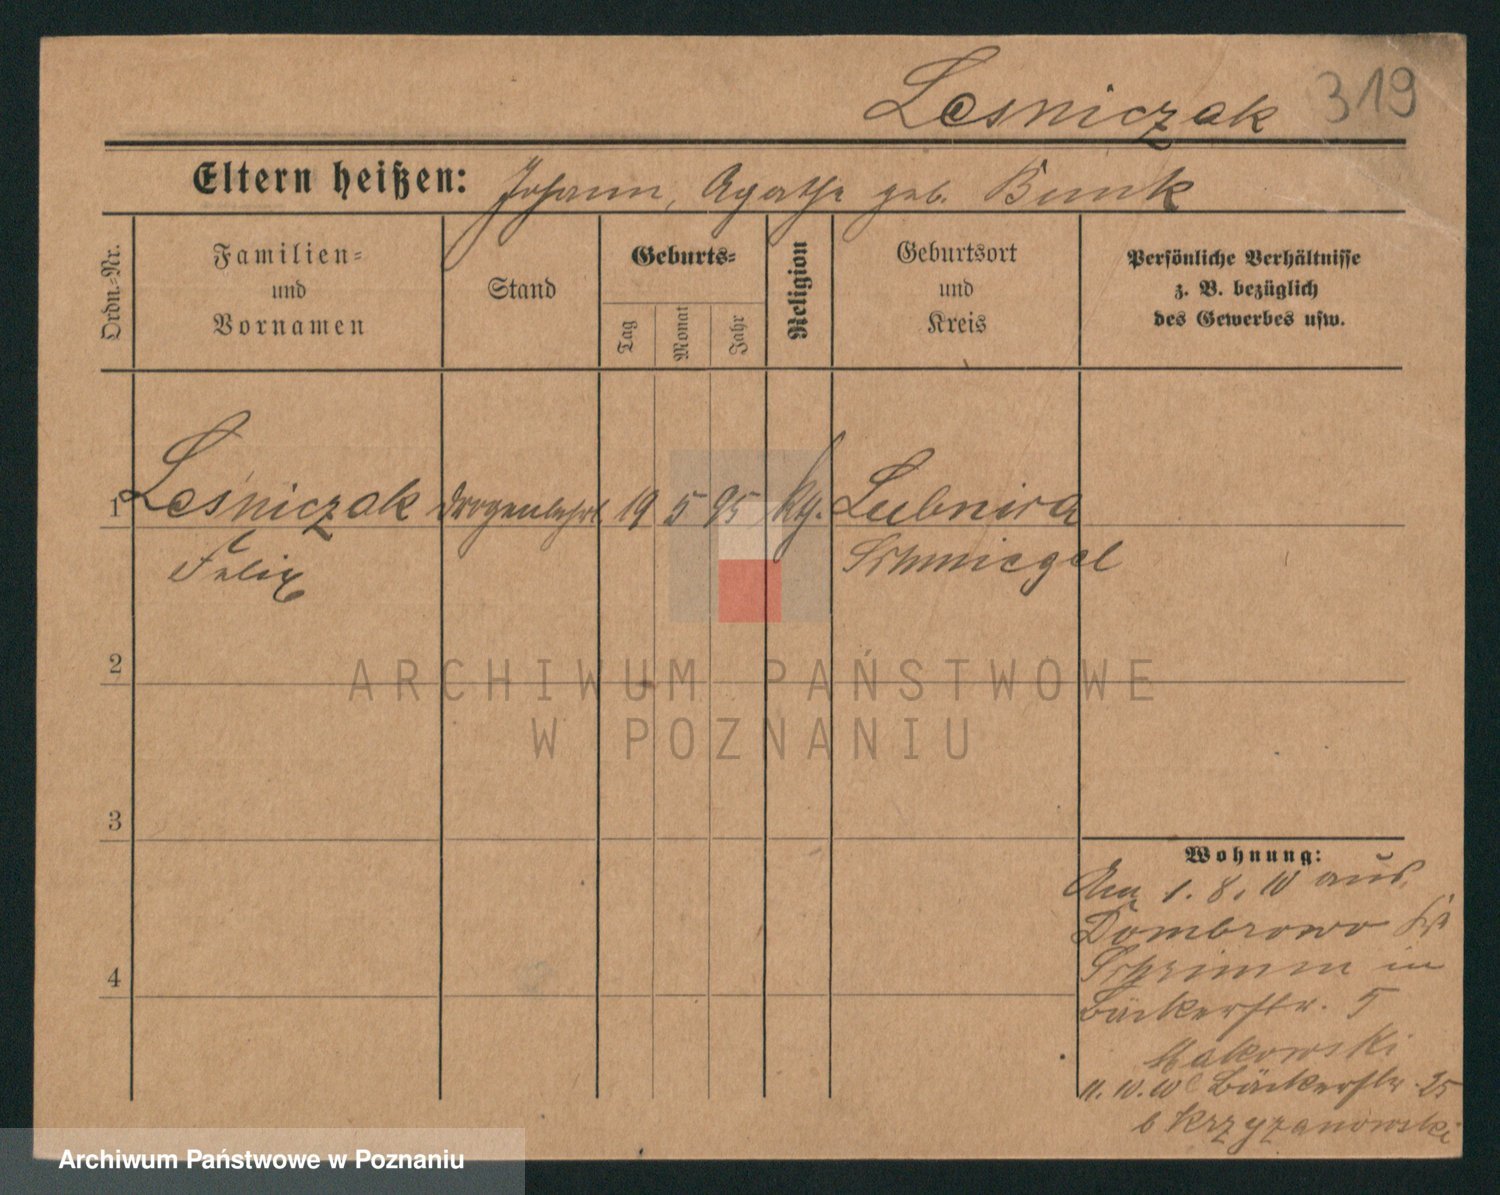 Lesniczak 319
Eltern heißen: Johann, Agathe geb. Bunk
Ordn.-Nr.
Familien-
und
Vornamen
Stand
Geburts-
Tag
Monat
Jahr
Religion
Geburtsort
und
Kreis
Persönliche Verhältnisse
z. B. bezüglich
des Gewerbes usw.
1 Leśniczak Drogenlehrl. 19 5 95 kth. Lubnica
Felix Schmiegel
2
ARCHIWUM PAŃSTWOWE
W POZNANIU
3
Wohnung:
Am 1. 8. 10 aus
Dombrowo Krs
Schrimm in
4
Bäckerstr. 5
Makowski
11. 10. 10 Bäckerstr. 25
b Krzyzanowski
Archiwum Państwowe w Poznaniu